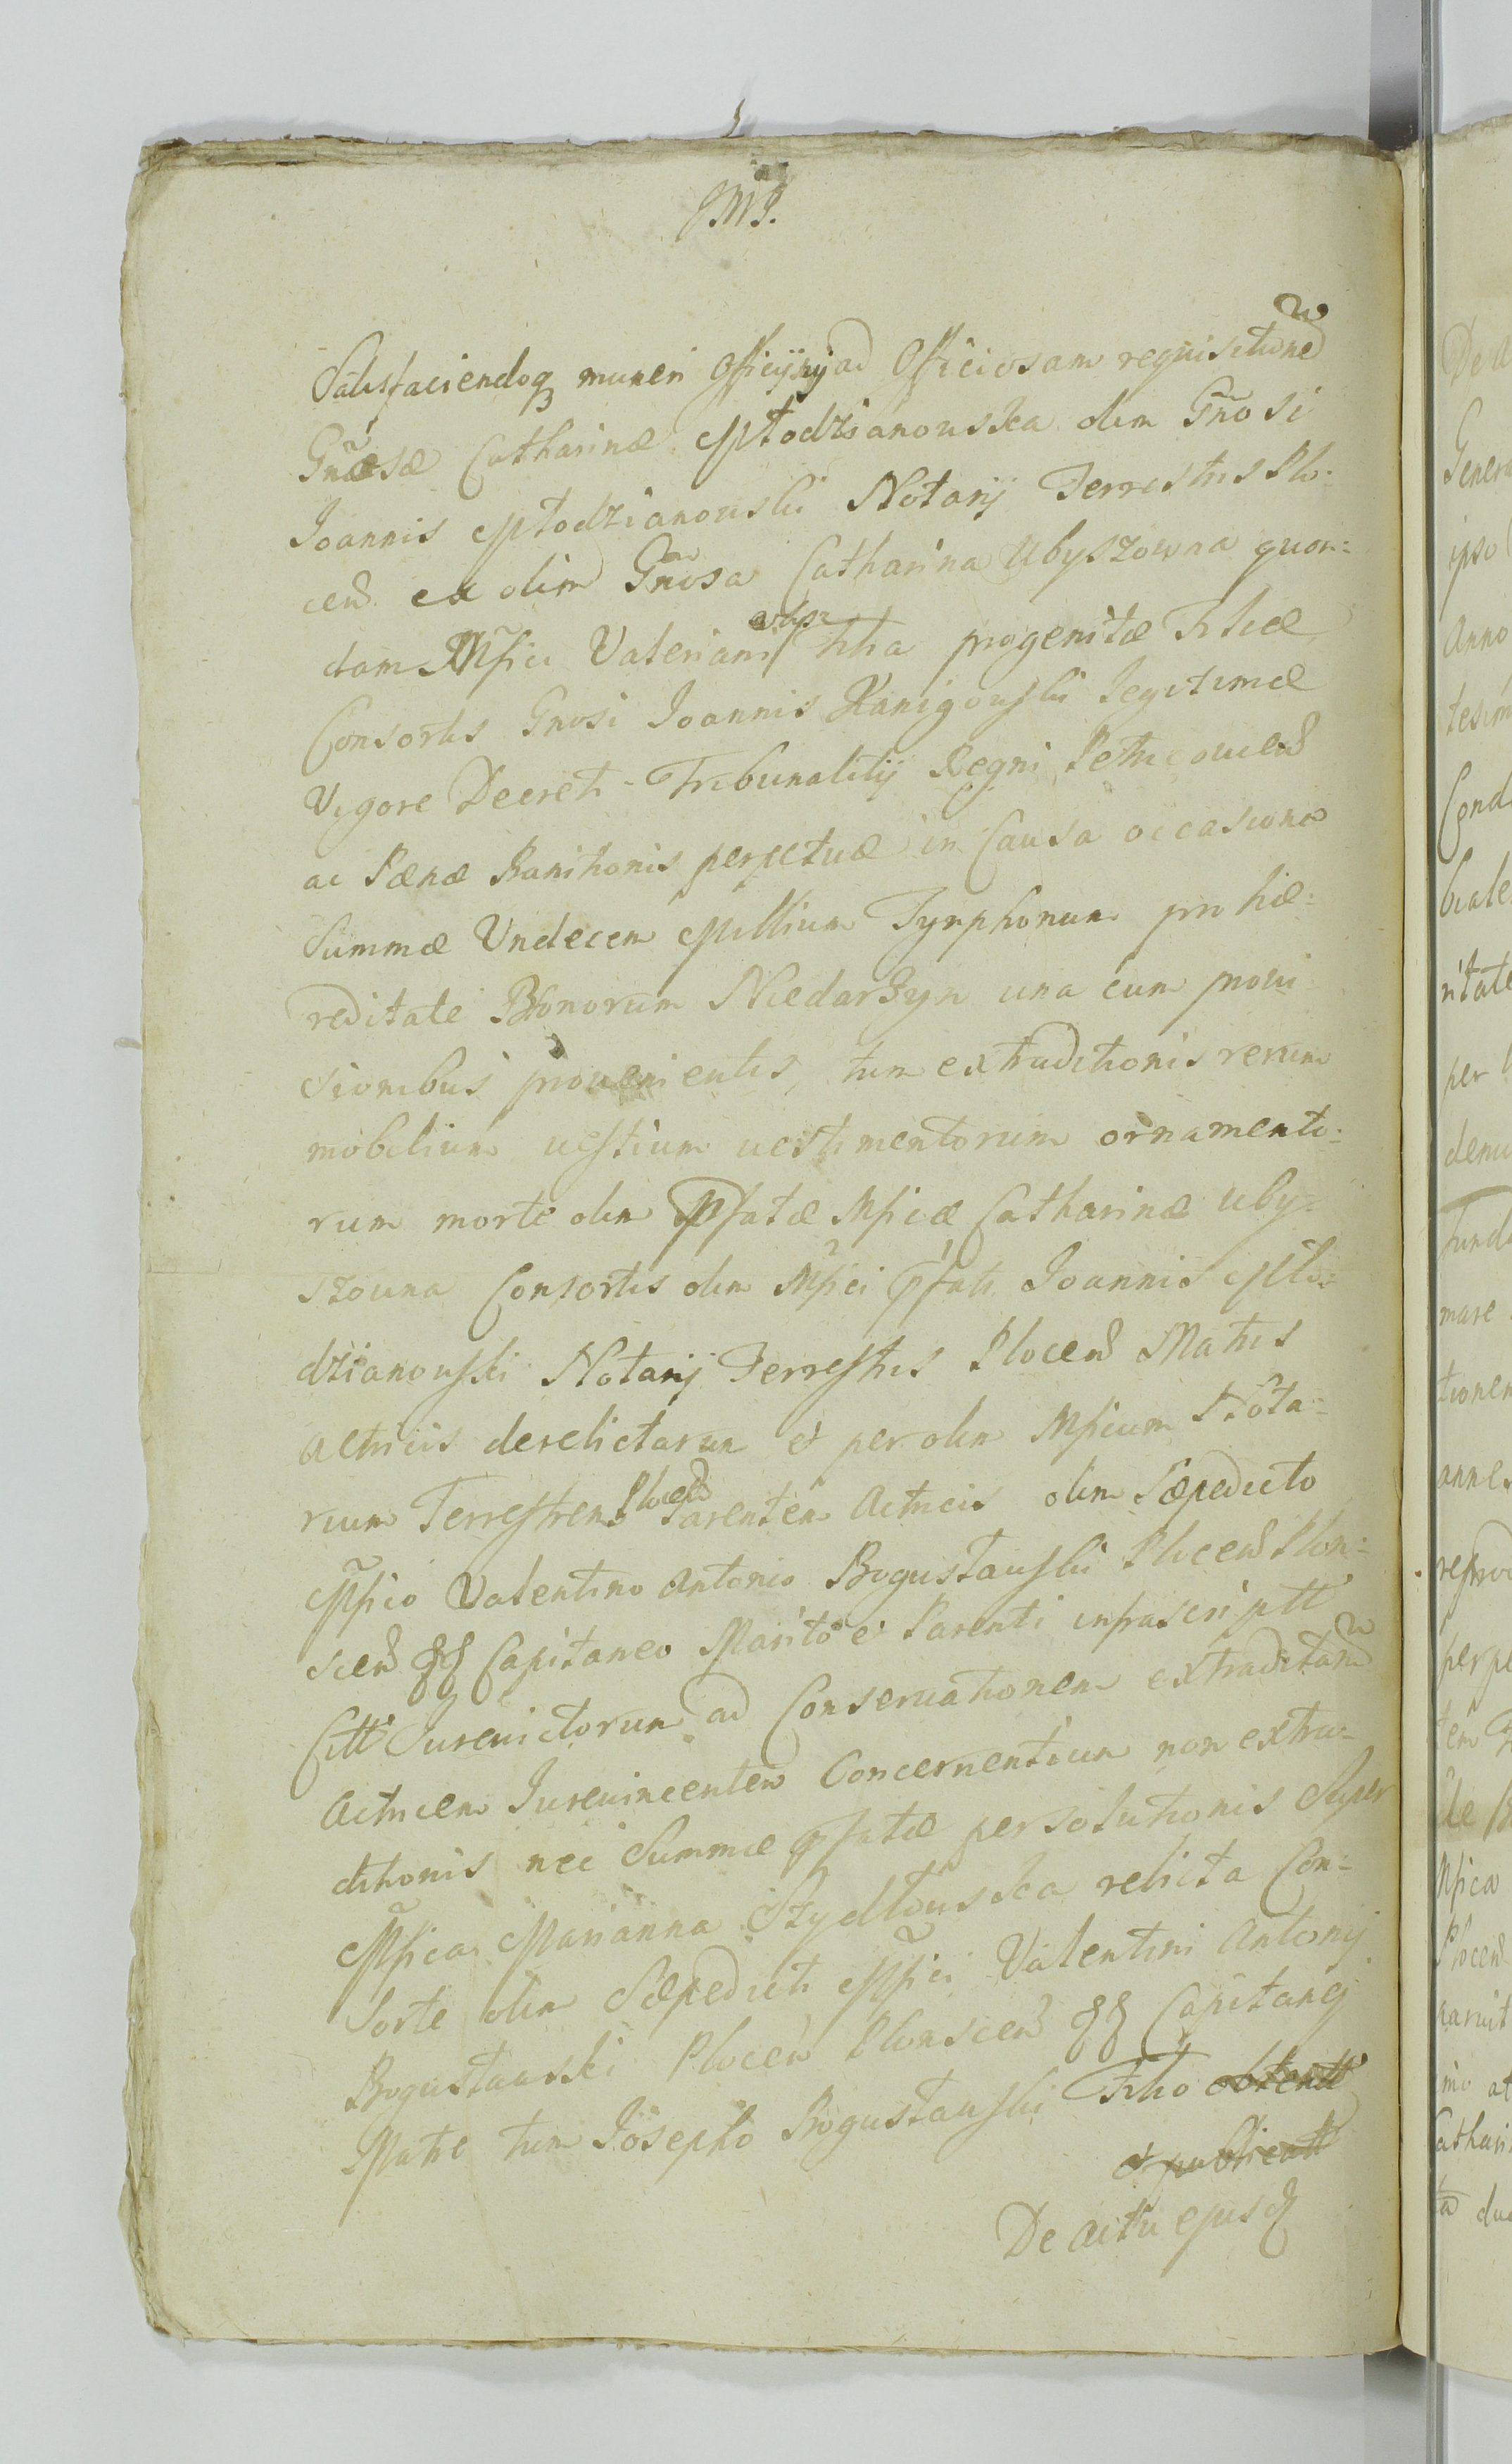 JMJ.
Satisfaciendoq muneri Officij sui ad Officiosam requisitione
Gnosæ Catharinæ Młodzianowska olim Gnosi
Joannis Młodzianowski Notarij Terrestris Plo:
cen. ex olim Gnosa Catharina Ubyszowna quon:
dam Mfici Valeriani filia progenitæ Filiæ
Consortis Gnosi Joannis Kanigowski Legitimæ
Vigore Decreti Tribunalitij Regni Petricovien
ac Pænæ Banitionis perpetuæ in Causa occasione
Summæ Undecem Millium Tynphonum pro hæ:
reditate Bonorum Niedarzyn una cum provi
sionibus provenientis, tum extraditionis rerum
mobilium vestium vestimentorum ornamento:
rum morte olim Pfatæ Mficæ Catharinæ Uby:
szowna Consortis olim Mfici Pfati Joannis Mło:
dzianowski Notarij Terrestris Plocen Matris
Actricis derelictarum et per olim Mficum Nota:
rium Terrestrem Plocen Parentem Actricis olim Sæpedicto
Mfico Valentino Antonio Bogustawski Plocen Plon:
scen gg Capitaneo Marito et Parenti infrascriptt
Citt Jurevictorum ad Conservationem extraditam
Actricem Jurevincentem Concernentium non extra:
ditionis nec Summæ Pfatæ persolutionis Super
Mfica Marianna Szydłowska relicta Con:
sorte olim Sæpedicti Mfici Valentini Antonij
Bogustawski Plocen Plonscen gg Capitanej
Matre tum Josepho Bogustawski Filio obtentt
et publicatt
De actu ejusq